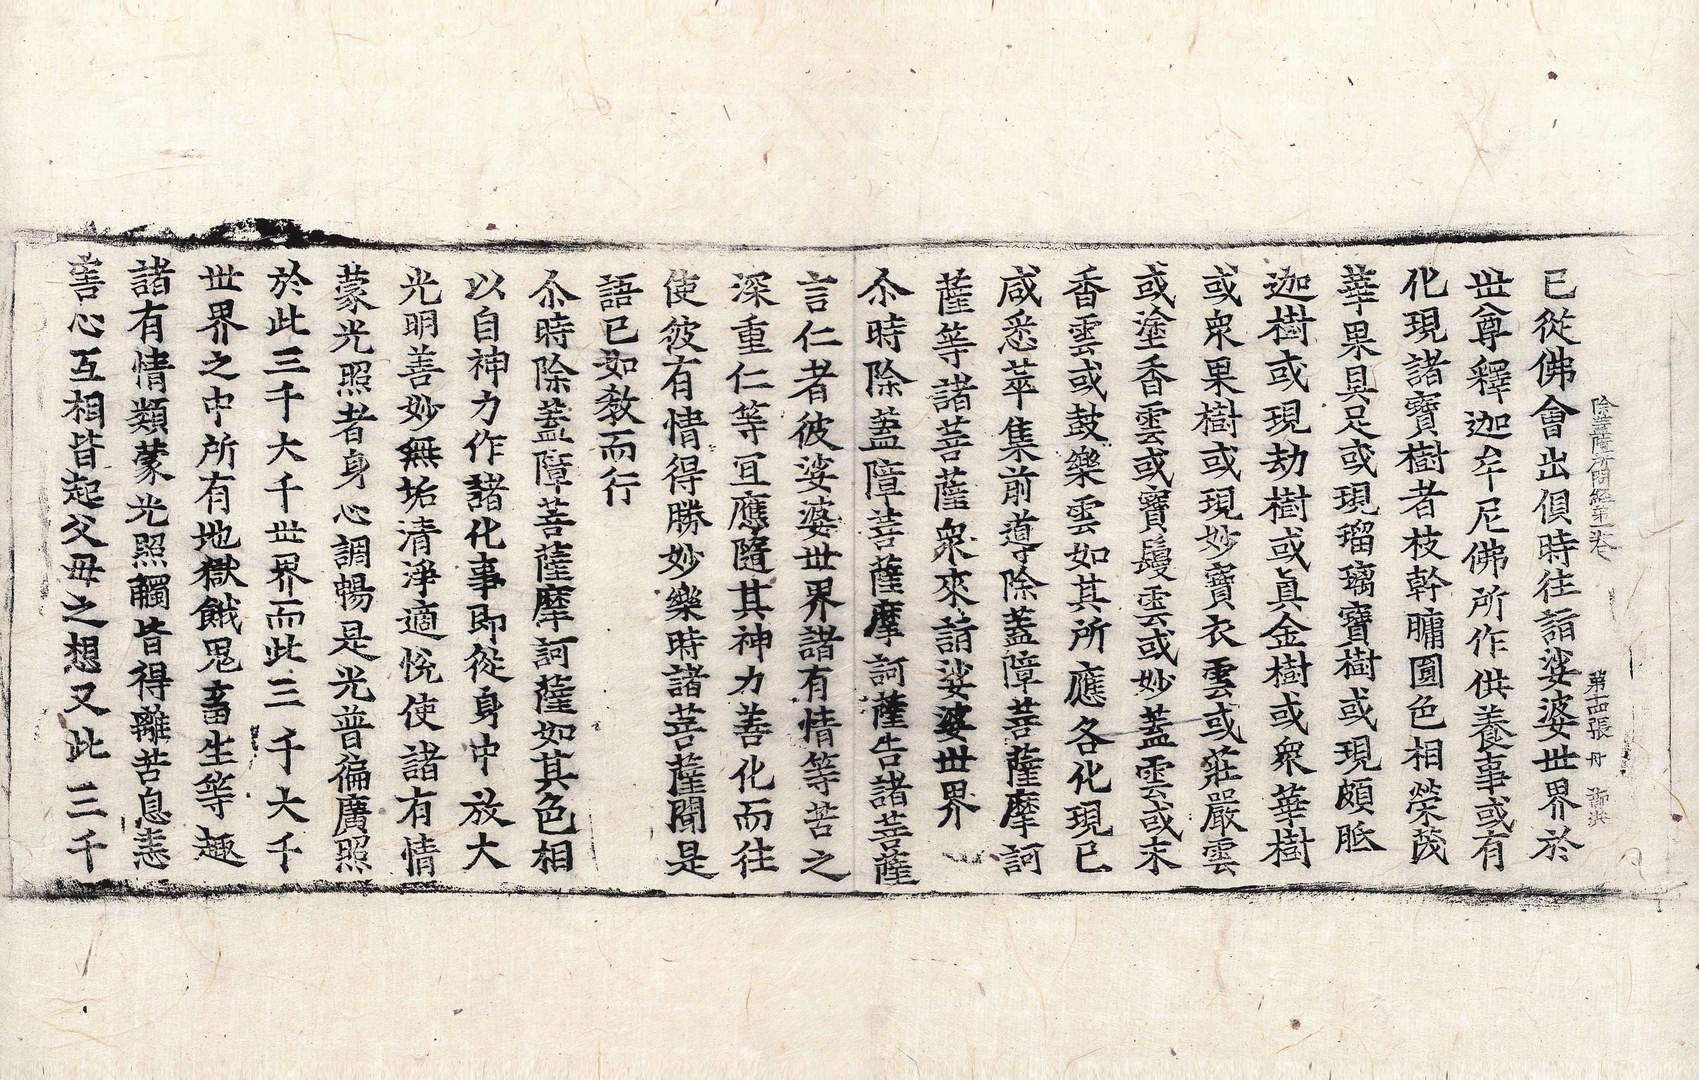 除蓋障菩薩所問經第一卷 第十四張 丹
已從佛會出俱時往詣娑婆世界於
世尊釋迦牟尼佛所作供養事或有
化現諸寶樹者枝幹𦟛圓色相榮茂
華果具足或現瑠璃寶樹或現頗胝
迦樹或現劫樹或眞金樹或衆華樹
或衆果樹或現妙寶衣雲或莊嚴雲
或塗香雲或寶鬘雲或妙蓋雲或末
香雲或鼓樂雲如其所應各化現已
咸悉萃集前導除蓋障菩薩摩訶
薩等諸菩薩衆來詣娑婆世界
尒時除蓋障菩薩摩訶薩告諸菩薩
言仁者彼娑婆世界諸有情等苦之
深重仁等宜應隨其神力善化而往
使彼有情得勝妙樂時諸菩薩聞是
語已如教而行
尒時除蓋障菩薩摩訶薩如其色相
以自神力作諸化事即從身中放大
光明善妙無垢清淨適悅使諸有情
蒙光照者身心調暢是光普徧廣照
於此三千大千世界而此三千大千
世界之中所有地獄餓鬼畜生等趣
諸有情類蒙光照觸皆得離苦息恚
害心互相皆起父母之想又此三千